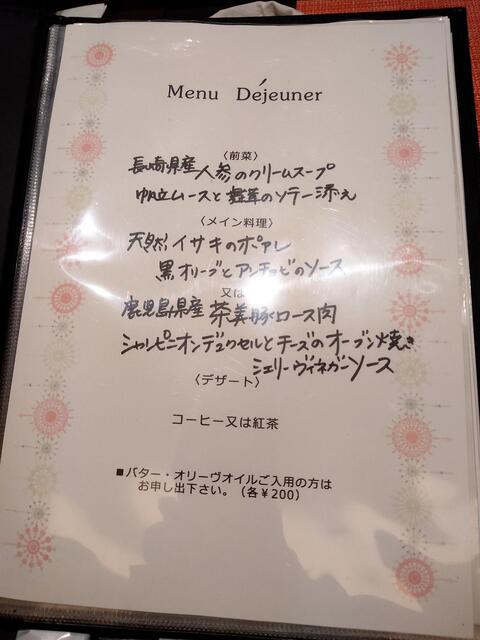 Menu Déjeuner
〈前菜〉
長崎県産人参のクリームスープ
帆立ムースと舞茸のソテー添え
〈メイン料理〉
天然イサキのポアレ
黒オリーブとアンチョビのソース
又は
鹿児島県産 茶美豚ロース肉
シャンピニオンデュクセルとチーズのオーブン焼き
シェリーヴィネガーソース
〈デザート〉
コーヒー又は紅茶
■バター・オリーヴオイルご入用の方は
お申し出下さい。（各￥200）